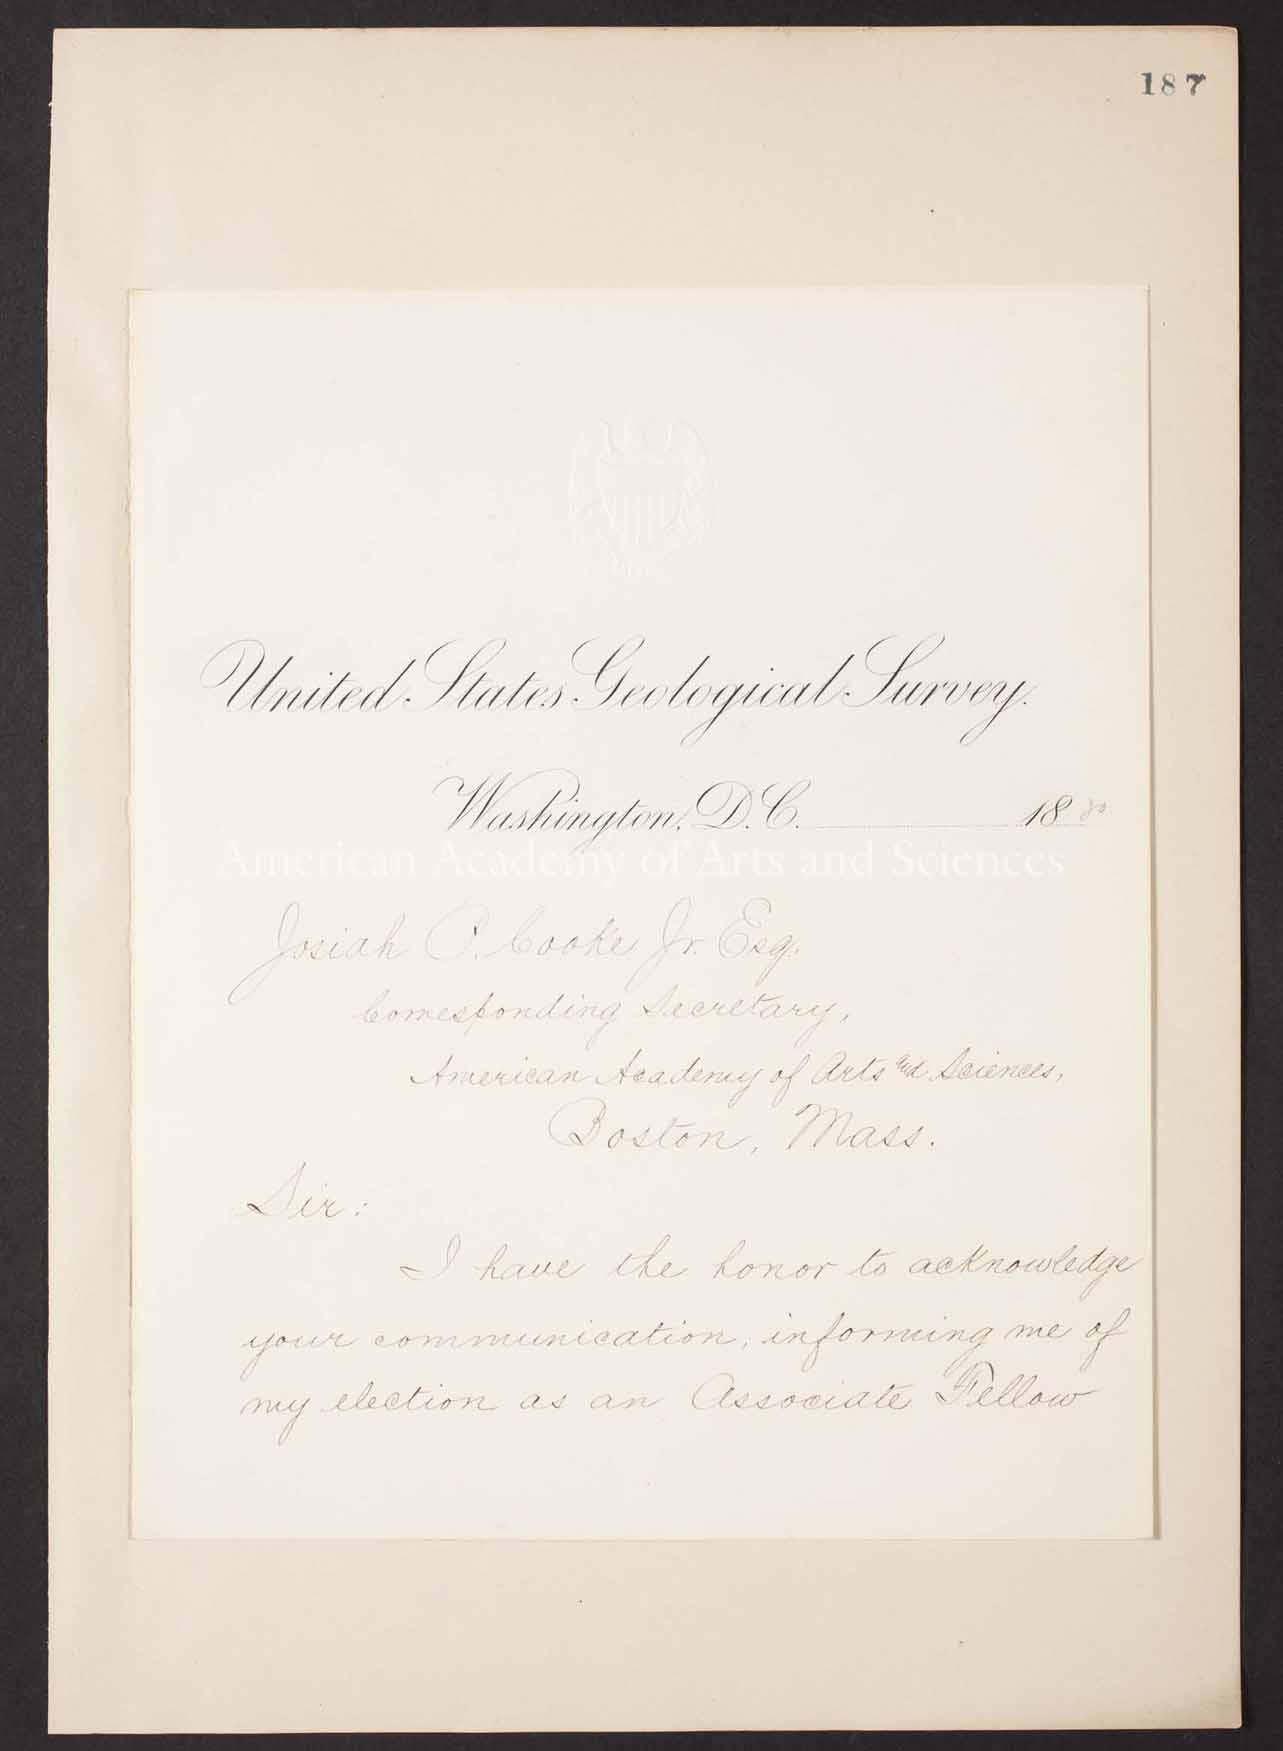 187
United States Geological Survey.
Washington, D.C. 1880
American Academy of Arts and Sciences
Josiah P. Cooke Jr. Esq.
Corresponding Secretary,
American Academy of Arts and Sciences,
Boston, Mass.
Sir:
I have the honor to acknowledge
your communication, informing me of
my election as an Associate Fellow